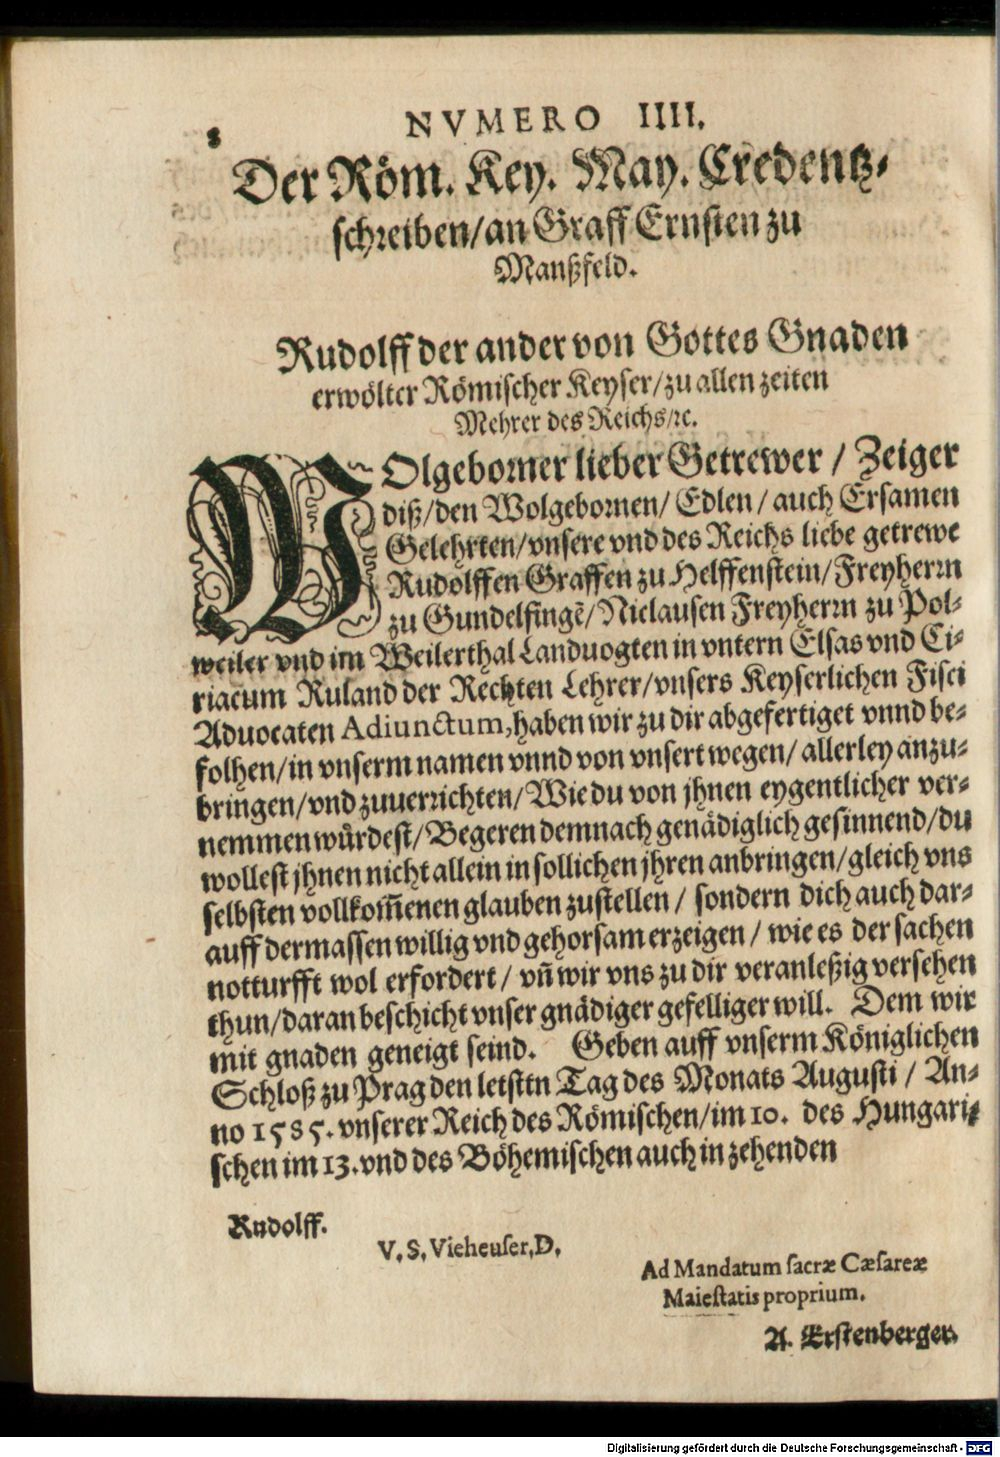 8
NVMERO IIII.
Der Röm. Key. May. Credentz-
schreiben/an Graff Ernsten zu
Manßfeld.
Rudolff der ander von Gottes Gnaden
erwölter Römischer Keyser/zu allen zeiten
Mehrer des Reichs/ꝛc.
WOlgeborner lieber Getrewer / Zeiger
diß/den Wolgebornen/ Edlen / auch Ersamen
Gelehrten/vnsere vnd des Reichs liebe getrewe
Rudolffen Graffen zu Helffenstein/Freyherrn
zu Gundelfingẽ/Niclausen Freyherrn zu Pol-
weiler vnd im Weilerthal Landuogten in vntern Elsas vnd Ci-
riacum Ruland der Rechten Lehrer/vnsers Keyserlichen Fisci
Aduocaten Adiunctum,haben wir zu dir abgefertiget vnnd be-
folhen/in vnserm namen vnnd von vnsert wegen/ allerley anzu-
bringen/vnd zuuerrichten/Wie du von jhnen eygentlicher ver-
nemmen wůrdest/Begeren demnach genädiglich gesinnend/du
wollest jhnen nicht allein in sollichen jhren anbringen/gleich vns
selbsten vollkom̃enen glauben zustellen / sondern dich auch dar-
auff dermassen willig vnd gehorsam erzeigen / wie es der sachen
notturfft wol erfordert / vñ wir vns zu dir veranleßig versehen
thun/daran beschicht vnser gnädiger gefelliger will. Dem wir
mit gnaden geneigt seind. Geben auff vnserm Königlichen
Schloß zu Prag den letsttn Tag des Monats Augusti / An-
no 1585. vnserer Reich des Römischen/im 10. des Hungari-
schen im 13.vnd des Böhemischen auch in zehenden
Rudolff.
V. S. Vieheuser,D.
Ad Mandatum sacræ Cæsareæ
Maiestatis proprium.
A. Erstenberger.
Digitalisierung gefördert durch die Deutsche Forschungsgemeinschaft - DFG